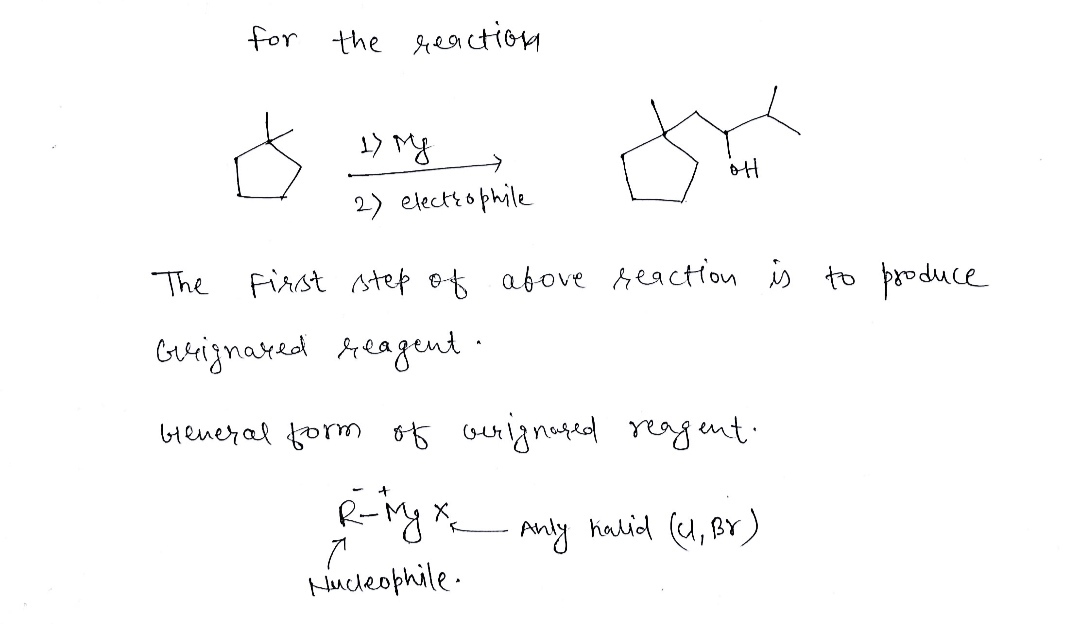 for the reaction
1) Mg
2) electrophile
OH
The First step of above reaction is to produce
Grignared reagent.
General form of Grignared reagent.
R⁻–Mg⁺ X ← Anly halid (Cl, Br)
Nucleophile.